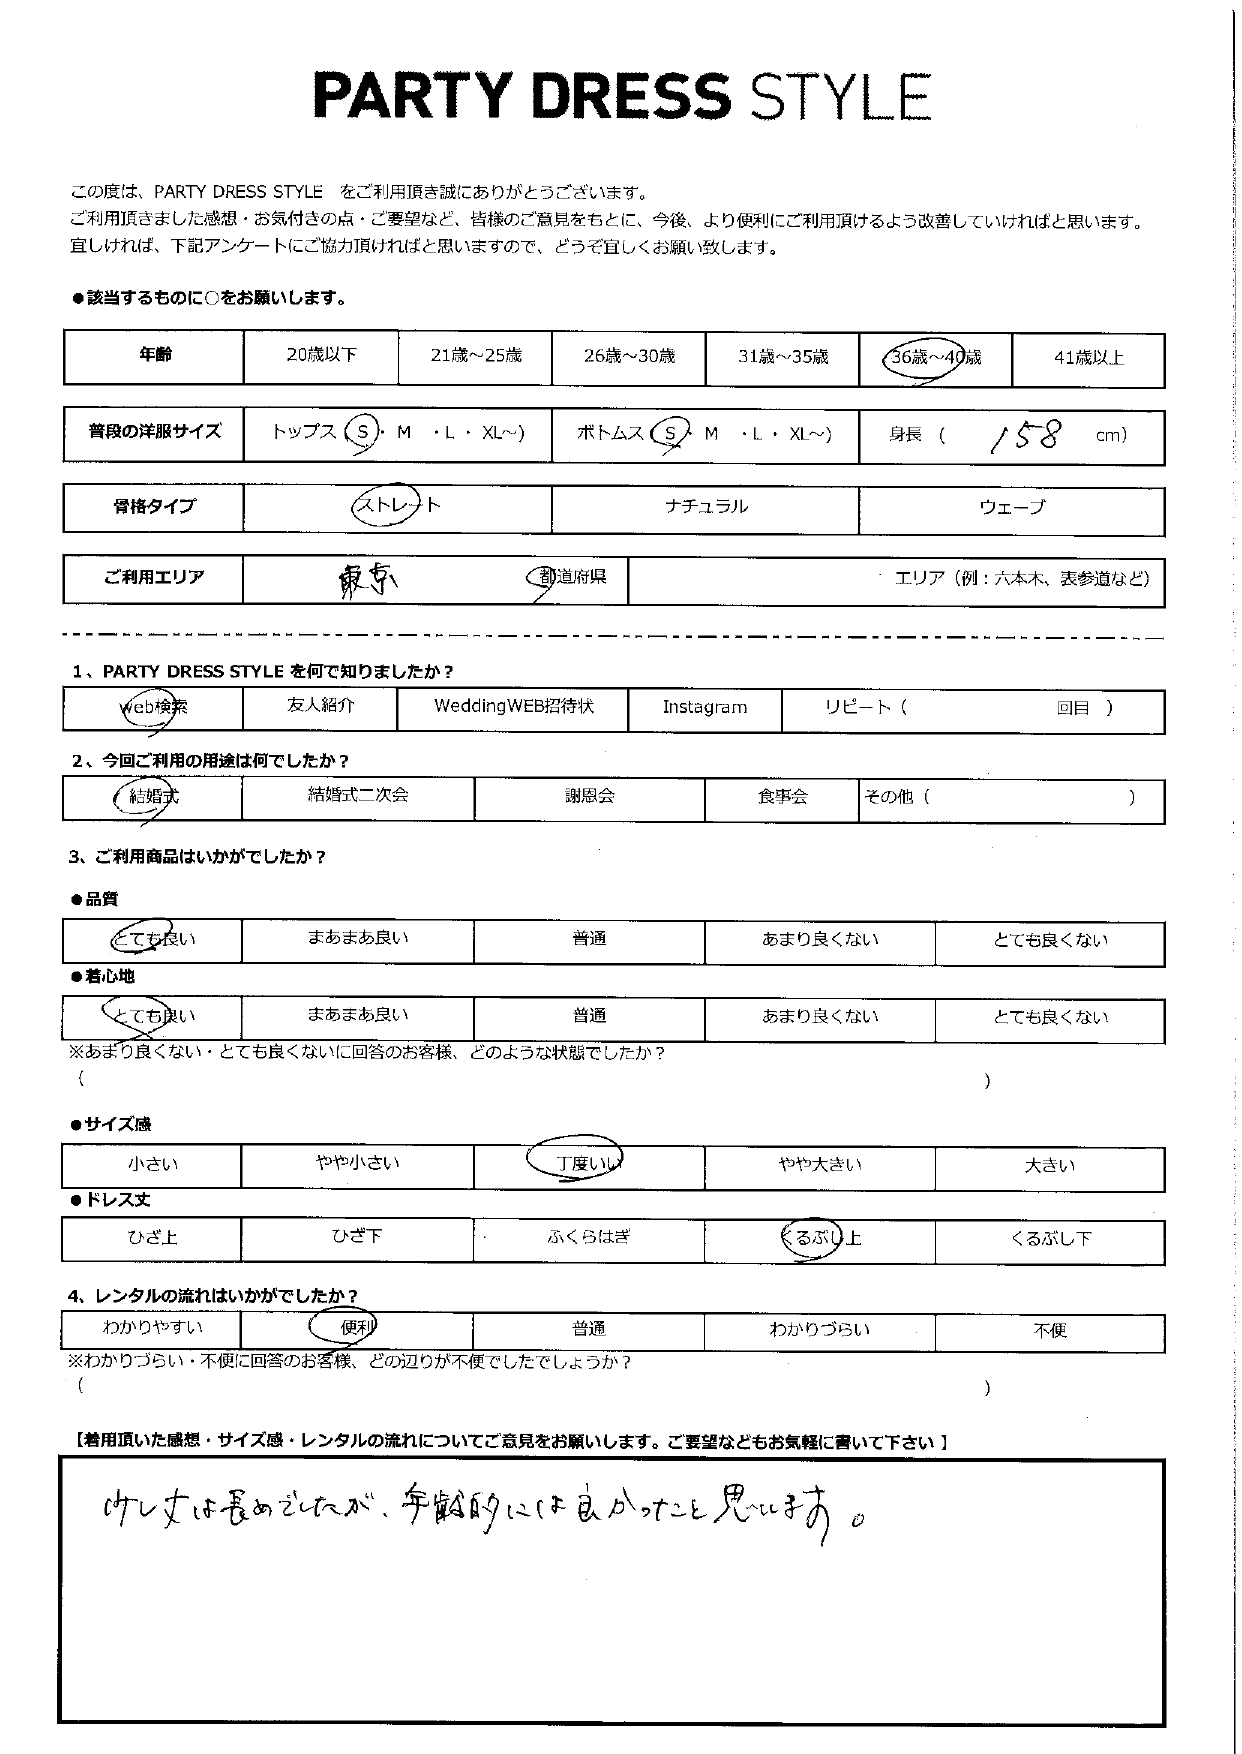 PARTY DRESS STYLE
この度は、PARTY DRESS STYLE をご利用頂き誠にありがとうございます。
ご利用頂きました感想・お気付きの点・ご要望など、皆様のご意見をもとに、今後、より便利にご利用頂けるよう改善していければと思います。
宜しければ、下記アンケートにご協力頂ければと思いますので、どうぞ宜しくお願い致します。
●該当するものに○をお願いします。
年齢 20歳以下 21歳～25歳 26歳～30歳 31歳～35歳 36歳～40歳 41歳以上
普段の洋服サイズ トップス（S・ M ・L ・ XL～) ボトムス（S・ M ・L ・ XL～) 身長（ 158 cm）
骨格タイプ ストレート ナチュラル ウェーブ
ご利用エリア 東京 都道府県 エリア（例：六本木、表参道など）
1、PARTY DRESS STYLE を何で知りましたか？
web検索 友人紹介 WeddingWEB招待状 Instagram リピート（ 回目 ）
2、今回ご利用の用途は何でしたか？
結婚式 結婚式二次会 謝恩会 食事会 その他（ ）
3、ご利用商品はいかがでしたか？
●品質
とても良い まあまあ良い 普通 あまり良くない とても良くない
●着心地
とても良い まあまあ良い 普通 あまり良くない とても良くない
※あまり良くない・とても良くないに回答のお客様、どのような状態でしたか？
（ ）
●サイズ感
小さい やや小さい 丁度いい やや大きい 大きい
●ドレス丈
ひざ上 ひざ下 ふくらはぎ くるぶし上 くるぶし下
4、レンタルの流れはいかがでしたか？
わかりやすい 便利 普通 わかりづらい 不便
※わかりづらい・不便に回答のお客様、どの辺りが不便でしたでしょうか？
（ ）
【着用頂いた感想・サイズ感・レンタルの流れについてご意見をお願いします。ご要望などもお気軽に書いて下さい 】
少し丈は長めでしたが、年齢的には良かったこと思います。